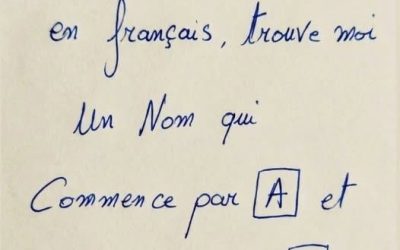 en français, trouve moi
Un Nom qui
Commence par A et